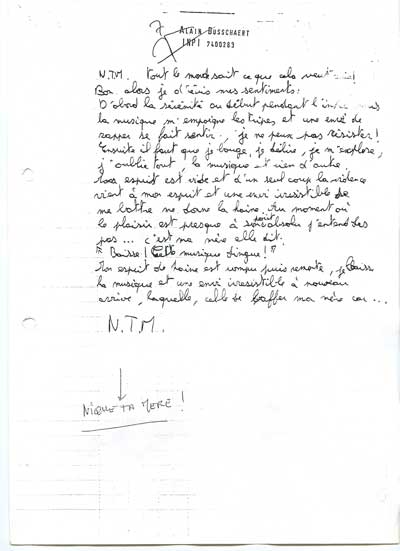 7
ALAIN BUSSCHAERT
INPI 7400283
N.T.M. tout le monde sait ce que cela veut
Bon alors je décris mes sentiments:
D'abord la sérénité au début pendant l'
la musique m'empoigne les tripes et une envie de
rapper se fait sentir, je ne peux pas résister!
Ensuite il faut que je bouge, je délire, je m'explose,
j'oublie tout, la musique et rien d'autre.
Mon esprit est vide et d'un seul coup la violence
vient à mon esprit et une envi irrésistible de
me battre me donne la haine. Au moment où
le plaisir est presque à son point absolu j'entend des
pas... c'est ma mère elle dit.
" Baisse! Cette musique dingue! "
Mon esprit de haine est rompu puis remonte, je baisse
la musique et une envi irrésistible à nouveau
arrive, laquelle, celle de baffer ma mère car ...
N.T.M.
NIQUE TA MERE !